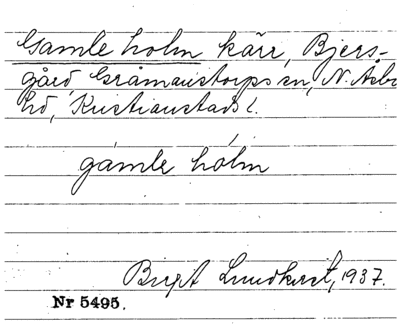 Gamle holm kärr, Bjers-
gård, Gråmanstorps sn, N. Åsbo
hd, Kristianstads l.
gámle hólm
Birgit Lundkvist, 1937.
Nr 5495.